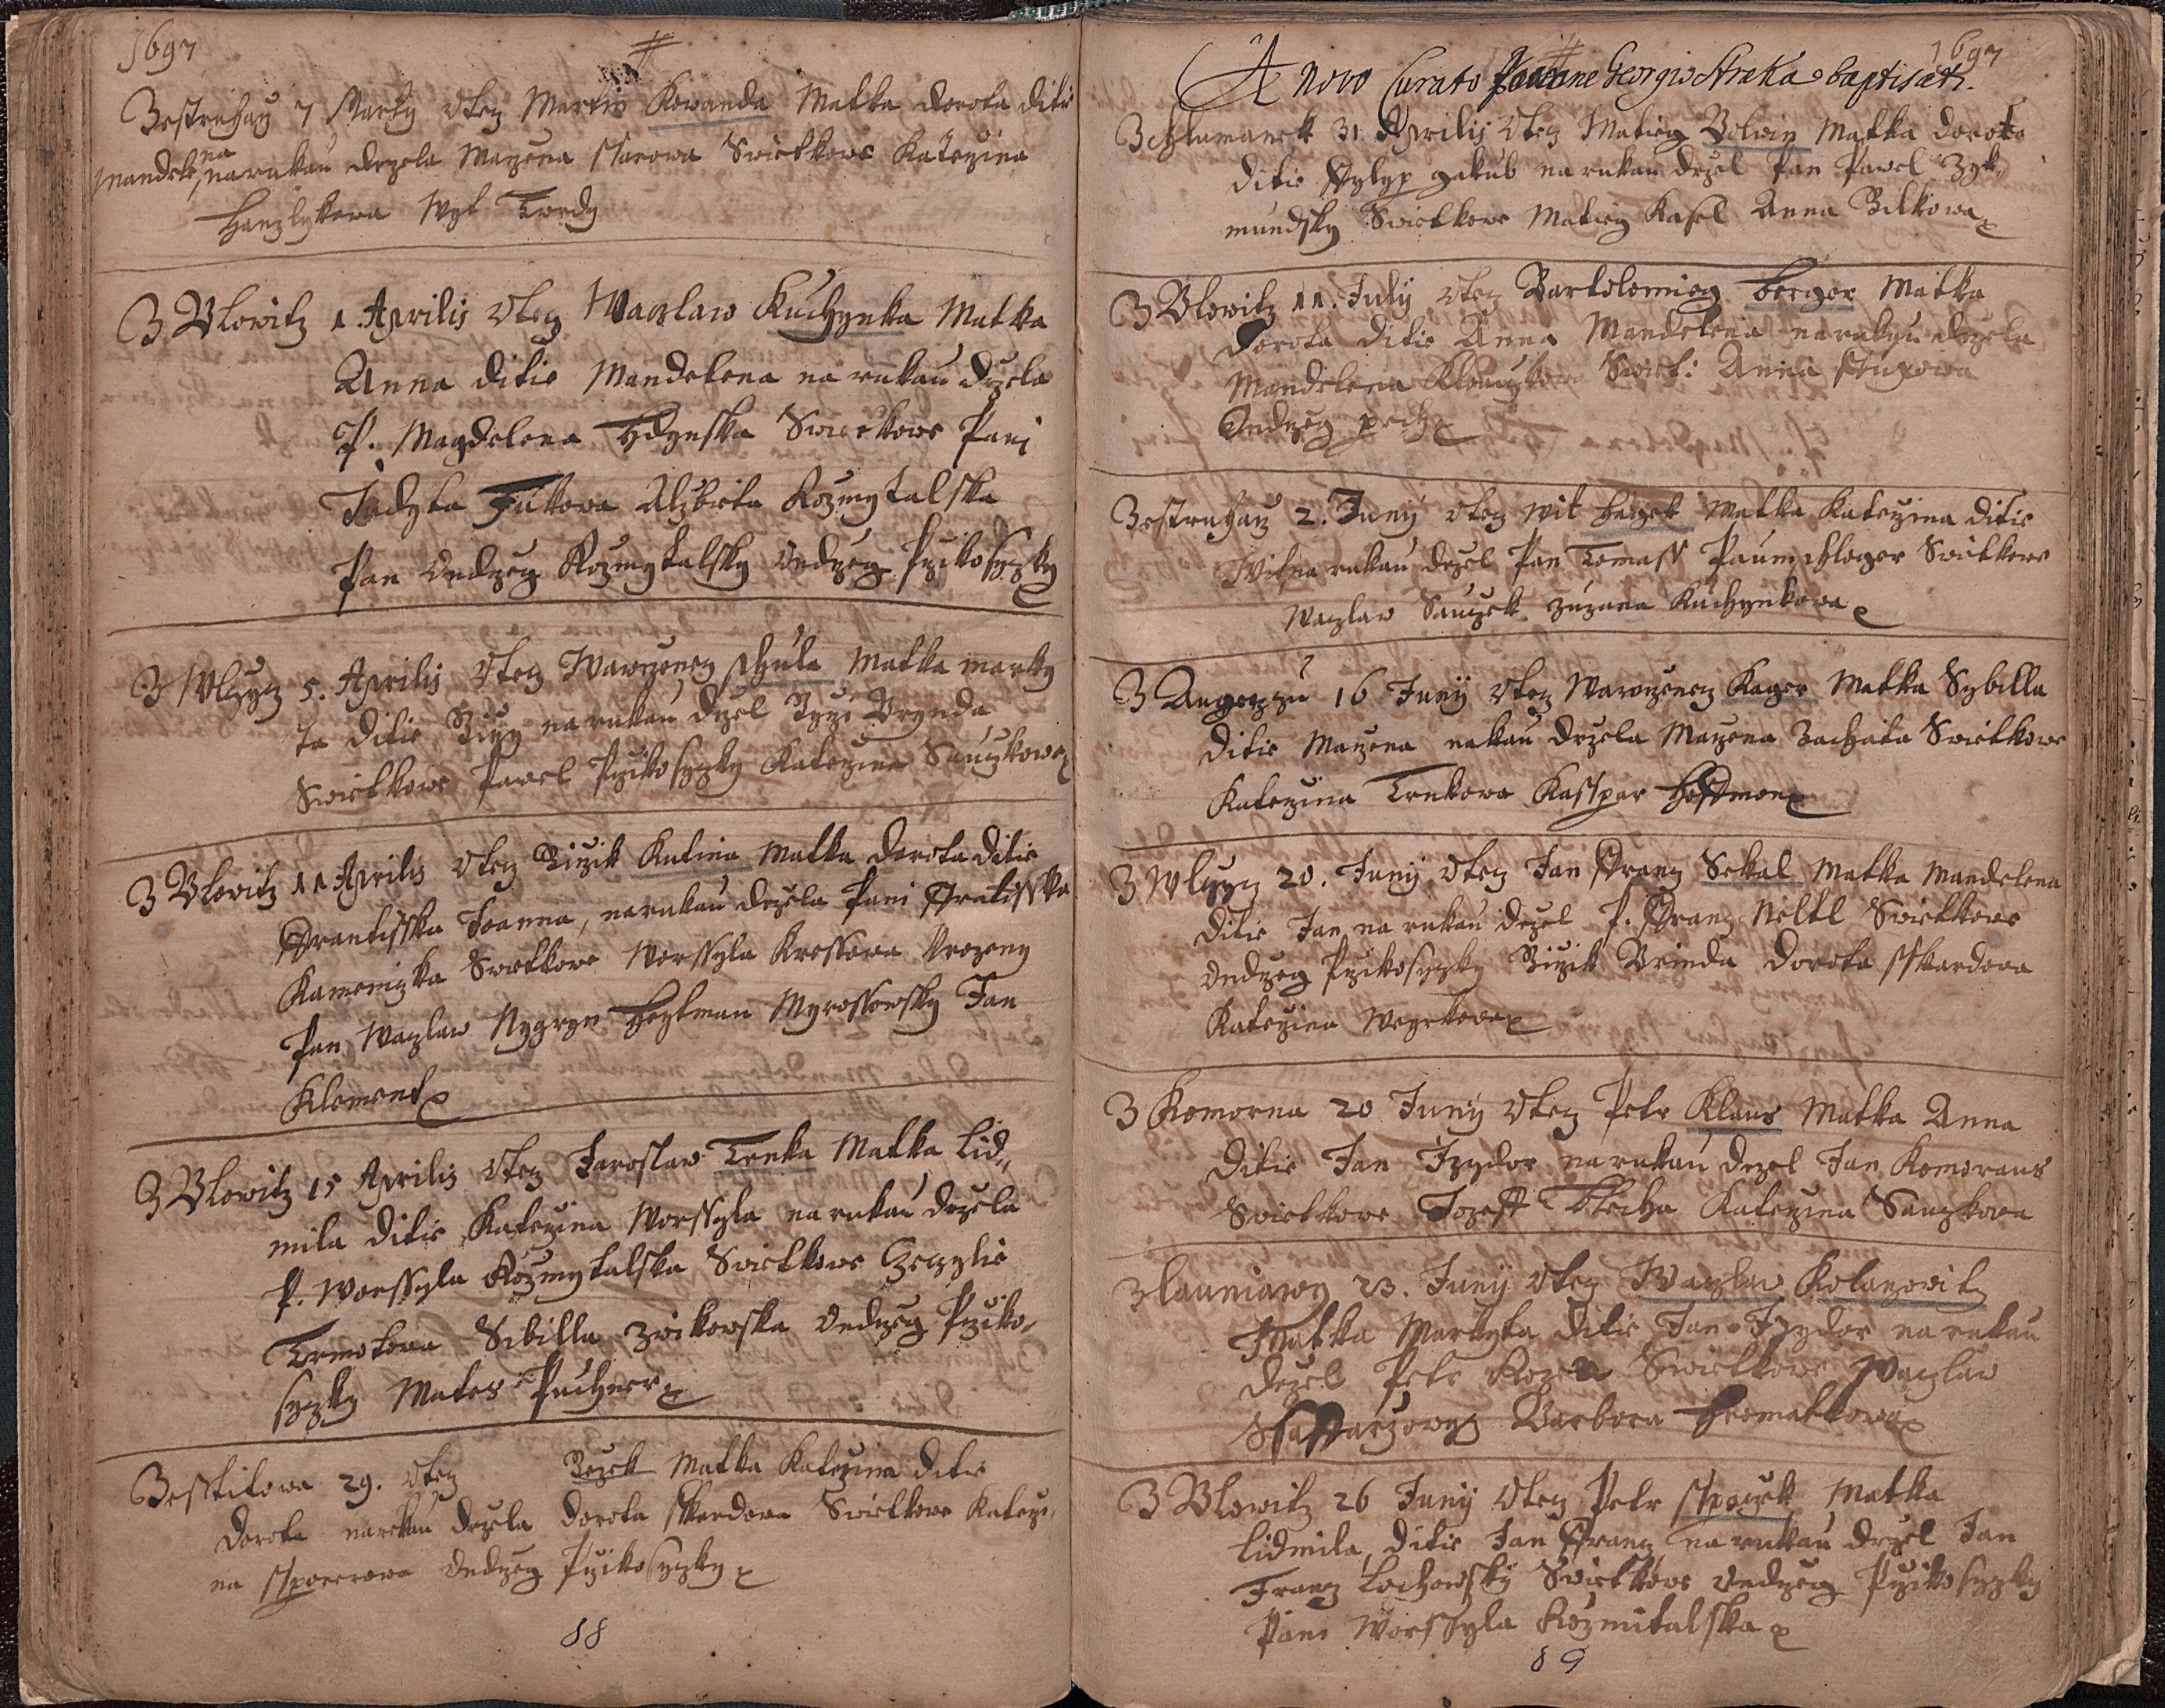 1697
Zestrahau 7 Marty Otecz Martin Kowanda Matka Dorota ditie
na
Mandele, narukau drzela Marzena Starowa Swietkowe Katerzina
Hanzlykowa Wyt Twrdy
Z Blowitz 1. Aprilis Otecz Waczlaw Kuchynka Matka
Anna ditie Mandelena na rukau drzela
P. Magdelena Swietkowe Pani
Judyta Fukowa Alzbieta Rozmytalska
Pan Ondrzeg Rozmytalsky Ondrzeg Przikosyczky
Z Wlczycz 5. Aprilis Otecz Wawrzenecz Matka marky
ta ditie Girzy na rukau drzel Brynda
Swietkowe Pawel Przikosyczky Katerzina Sauczkowa
Z Blowitz 11 Aprilis Otecz Girzik Kutina Matka Dorota ditie
Frantisska Joanna, narukau drzela Pani Frantisska
Kameniczka Swietkowe Worssyla Kressowa Urozeny
Pan Waczlaw Nygryn Heytman Myrossowsky Jan
Klement
Z Blowitz 15 Aprilis Otecz Jaroslaw Trnka Matka Lid,,
mila ditie Katerzina Worssyla na rukau drzela
P. Worssyla Rozmytalska Swietkowe Czeczylie
Sibilla Zwikowska Ondrzeg Prziko,
syczky Mates Puchner
Zesstitowa 29. Otecz Rezek Matka Katerzina ditie
Dorota narukau drzela Dorota Skardowa Swietkowe Katerzi,
na Ondrzeg Przikosyczky
88
1697
A Novo Curato Joanne Georgio Straka baptisati.
Z Chlumanek 31. Aprilis Otecz Matieg Matka Dorota
ditie Fylyp Jakub na rukau drzel Pan Pawel Zyk,
mundsky Swietkowe Matieg Kasel Anna Bilkowa
Z Blowitz 11. July Otecz Bartolomieg Berger Matka
Dorota ditie Anna Mandelena narukau drzela
Mandelena Swiet: Anna
Ondrzeg
Zestrahau 2. Juny Otecz Wit Hagek Matka Katerzina ditie
Wit na rukau drzel Pan Tomass Paumschloger Swietkowe
Waczlaw Sauczek Zuzana Kuchynkowa
Z 16 Juny Otecz Wawrzenecz Kager Matka Sybilla
ditie Marzena nakau drzela Marzena Zachata Swietkowe
Katerzina Trnkowa Kasspar Hoffmon
Z Wlczycz 20. Juny Otecz Jan Francz Sekal Matka Mandelena
ditie Jan na rukau drzel P. Francz Neltl Swietkowe
Ondrzeg Przikosyczky Girzik Brinda Dorota Sskardowa
Katerzina
Z Komorna 20 Juny Otecz Petr Klaus Matka Anna
ditie Jan Izydor narukau drzel Jan Komoraus
Swietkowe Jozeff Blecha Katerzina Sauczkowa
Zlauniowy 23. Juny Otecz Waczlaw
Matka Markyta ditie Jan Izydor na rukau
drzel Petr Swietkowe Waczlaw
Barbora Hromatkowa
Z Blowitz 26 Juny Otecz Petr Matka
Lidmila, ditie Jan Francz na rukau drzel Jan
Francz Lochowsky Swietkowe Ondrzeg Przikosyczky
Pani Worssyla Rozmitalska
89